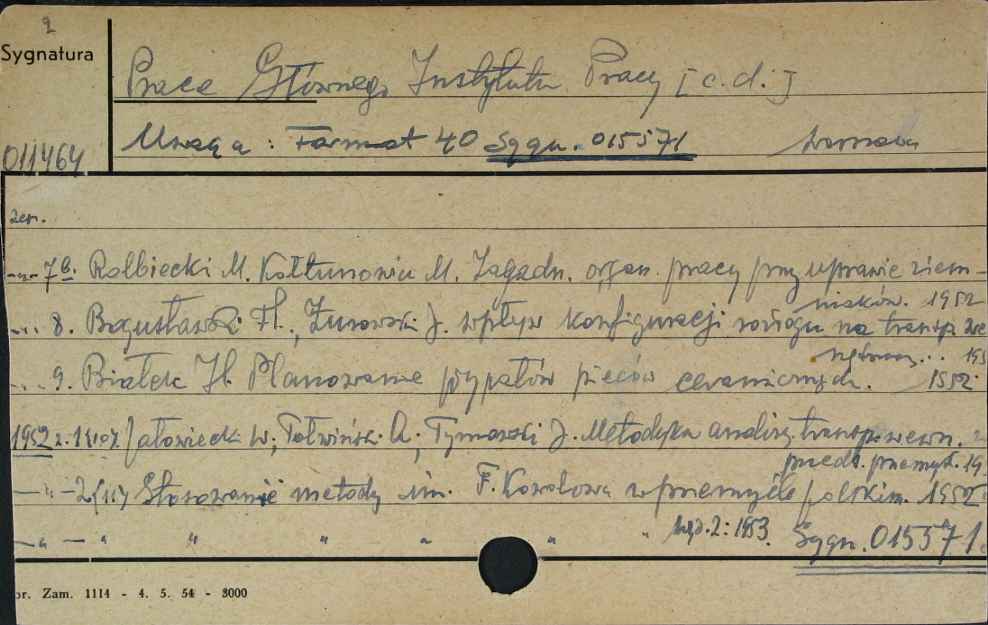 2
Sygnatura
Prace Głównego Instytutu Pracy [c.d.]
Uwaga: Format 40 Sygn. 015571 Warszawa
011464
zesz.
-"- 7/8. Rolbiecki M. Kołtunowicz M. Zagadn. organ. pracy przy uprawie ziem-
niaków. 1952
-"- 8. Bogusławski Fl., Żurowski J. Wpływ konfiguracji na transp. we
wnętrzn... 195
-"- 9. Białek H. Planowanie wypałów pieców ceramicznych. 1952.
1952 z. 1(10) Jałowiecki W; Tołwiński A; Tymowski J. Metodyka analizy transp. wewn.
przeds. przemysł. 19
-"- -2(11) Stosowanie metody im. F. Kowalowa w przemyśle polskim. 1952
-"- -" " " " " " wyd. 2: 1953. Sygn. 015571.
or. Zam. 1114 - 4. 5. 54 - 3000